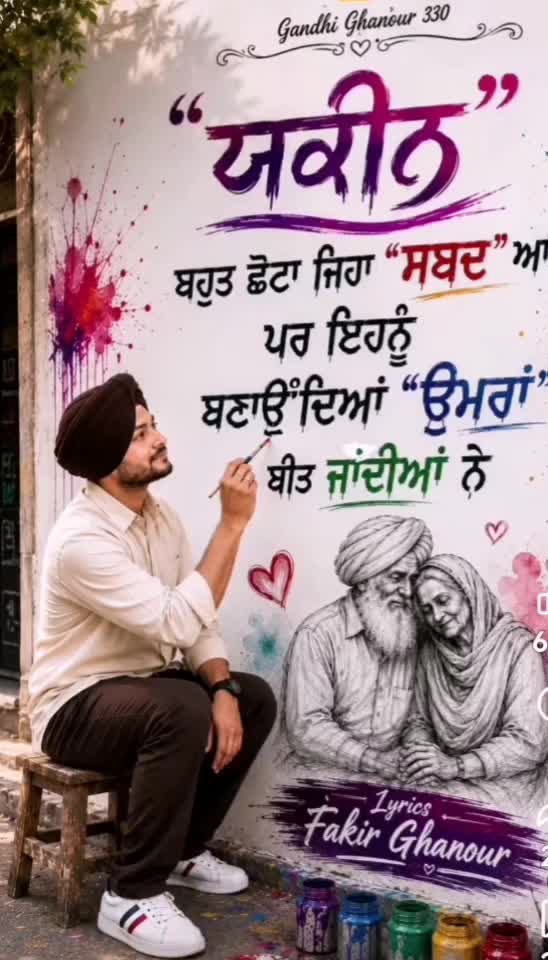 Gandhi Ghanour 330
“ਯਕੀਨ”
ਬਹੁਤ ਛੋਟਾ ਜਿਹਾ “ਸਬਦ” ਆ
ਪਰ ਇਹਨੂੰ
ਬਣਾਉਂਦਿਆਂ “ਉਮਰਾਂ”
ਬੀਤ ਜਾਂਦੀਆਂ ਨੇ
Lyrics
Fakir Ghanour